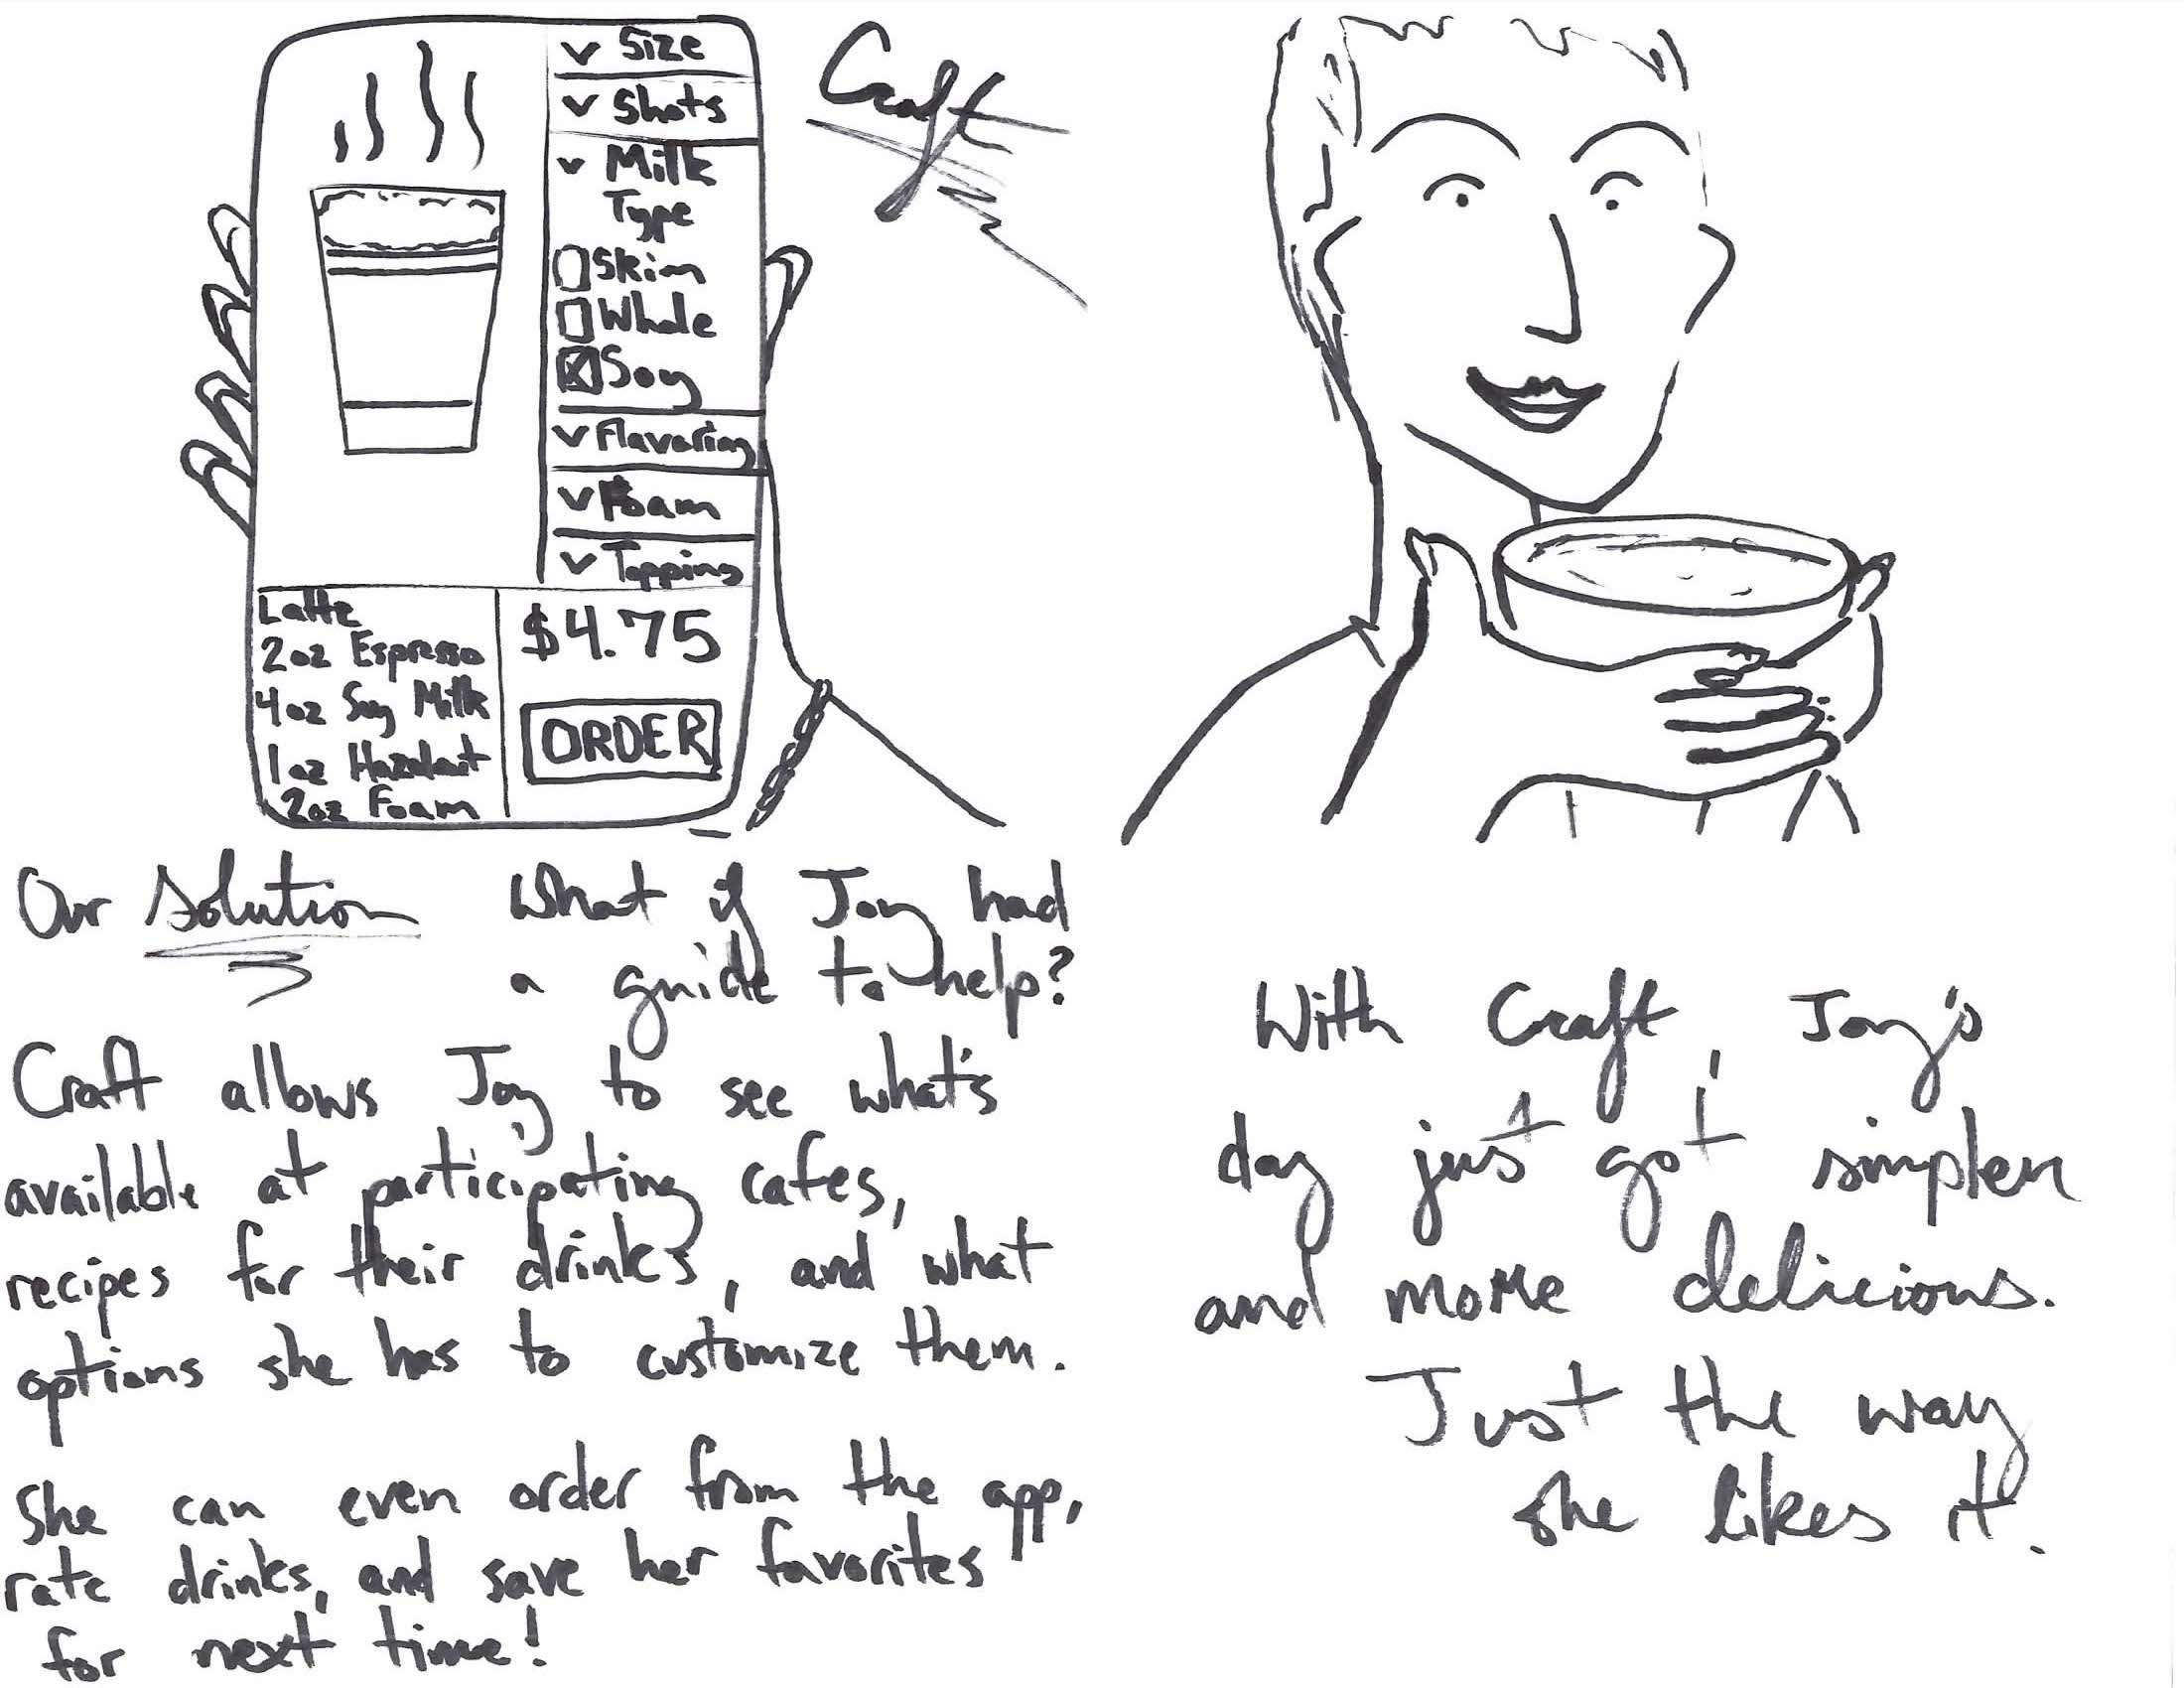 v Size
v Shots
v Milk
Type
Skim
Whole
Soy
v Flavoring
v Foam
v Topping
Latte
2oz Espresso
4oz Soy Milk
1oz Hazelnut
2oz Foam
$4.75
ORDER
Craft
Our solution What if Joy had
a guide to help?
Craft allows Joy to see what's
available at participating cafes,
recipes for their drinks, and what
options she has to customize them.
She can even order from the app,
rate drinks, and save her favorites
for next time!
With Craft, Joy's
day just got simpler
and more delicious.
Just the way
she likes it.